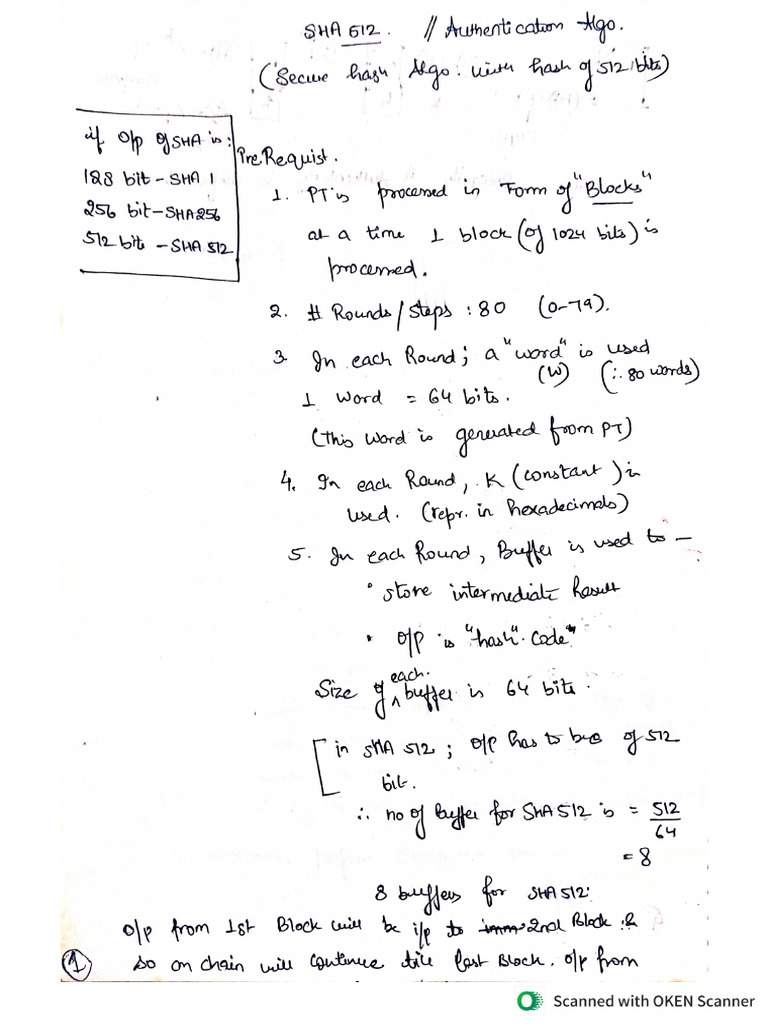 SHA 512. // Authentication Algo.
(Secure hash Algo. with hash of 512 bits)
if O/p of SHA is:
128 bit - SHA 1
256 bit - SHA256
512 bits - SHA 512
PreRequist.
1. PT is processed in Form of "Blocks"
at a time 1 block (of 1024 bits) is
processed.
2. # Rounds/Steps : 80 (0-79).
3. In each Round; a "word" is used
(W) (∴ 80 words)
1 word = 64 bits.
(this word is generated from PT)
4. In each Round, K (constant) is
used. (repr. in hexadecimals)
5. In each Round, Buffer is used to —
• store intermediate Result
• O/p is "hash" code"
Size of each buffer is 64 bits.
in SHA 512; O/p has to be of 512
bit.
∴ no of buffer for SHA 512 is = 512/64
= 8
8 buffers for SHA 512.
O/p from 1st Block will be i/p to 2nd Block &
① so on chain will continue till last Block. O/p from
Scanned with OKEN Scanner